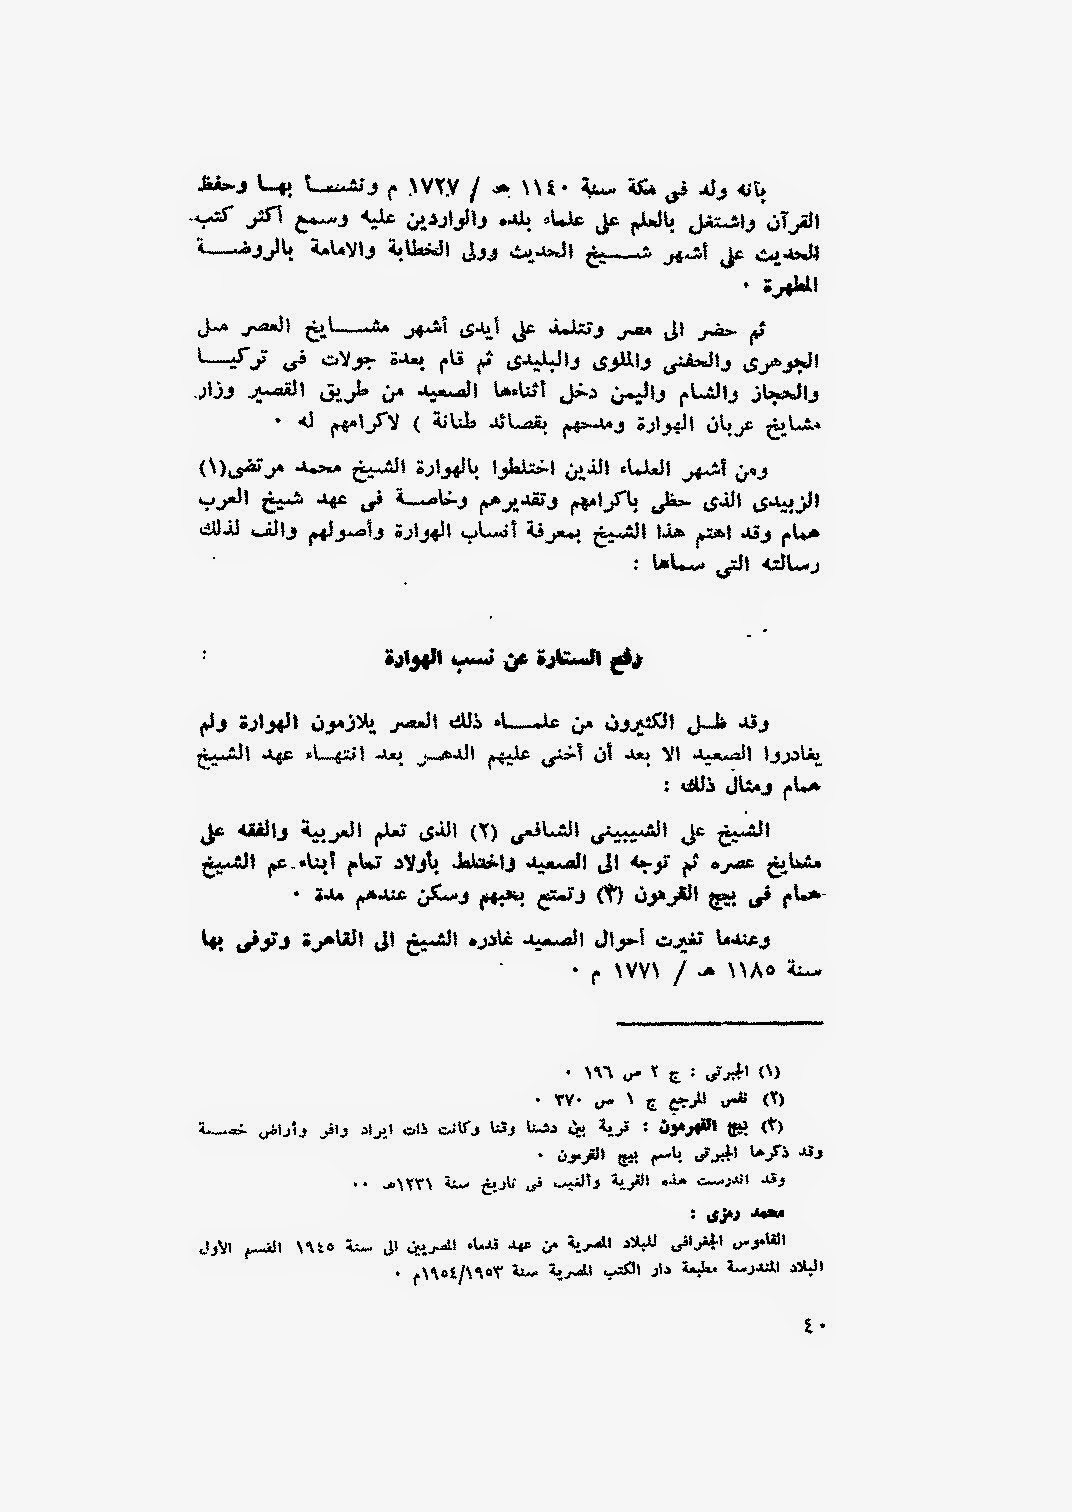 بأنه ولد في مكة سنة ١١٤٠ هـ / ١٧٢٧ م ونشأ بها وحفظ
القرآن واشتغل بالعلم على علماء بلده والواردين عليه وسمع أكثر كتب
الحديث على أشهر شيخ الحديث وولى الخطابة والامامة بالروضة
المطهرة ٠
ثم حضر الى مصر وتتلمذ على أيدى أشهر مشايخ العصر مثل
الجوهرى والحفنى والملوى والبليدى ثم قام بعدة جولات فى تركيا
والحجاز والشام واليمن دخل أثناءها الصعيد من طريق القصير وزار
مشايخ عربان الهوارة ومدحهم بقصائد طنانة ) لاكرامهم له ٠
ومن أشهر العلماء الذين اختلطوا بالهوارة الشيخ محمد مرتضى(١)
الزبيدى الذى حظى باكرامهم وتقديرهم وخاصة فى عهد شيخ العرب
همام وقد اهتم هذا الشيخ بمعرفة أنساب الهوارة وأصولهم والف لذلك
رسالته التى سماها :
رفع الستارة عن نسب الهوارة :
وقد ظل الكثيرون من علماء ذلك العصر يلازمون الهوارة ولم
يغادروا الصعيد الا بعد أن أخنى عليهم الدهر بعد انتهاء عهد الشيخ
همام ومثال ذلك :
الشيخ على الشيبينى الشافعى (٢) الذى تعلم العربية والفقه على
مشايخ عصره ثم توجه الى الصعيد واختلط بأولاد تمام أبناء عم الشيخ
همام فى بيج القرمون (٣) وتمتع بحبهم وسكن عندهم مدة ٠
وعندما تغيرت أحوال الصعيد غادره الشيخ الى القاهرة وتوفى بها
سنة ١١٨٥ هـ / ١٧٧١ م ٠
(١) الجبرتى : ج ٢ ص ١٩٦ ٠
(٢) نفس المرجع ج ١ ص ٣٧٠ ٠
(٣) بيج القهرمون : قرية بين دشنا وقنا وكانت ذات ايراد وافر وأراض خصبة
وقد ذكرها الجبرتى باسم بيج القرمون ٠
وقد اندرست هذه القرية وألغيت فى تاريخ سنة ١٢٣١هـ ٠٠
محمد رمزى :
القاموس الجغرافى للبلاد المصرية من عهد قدماء المصريين الى سنة ١٩٤٥ القسم الأول
البلاد المندرسة مطبعة دار الكتب المصرية سنة ١٩٥٤/١٩٥٣م ٠
٤٠